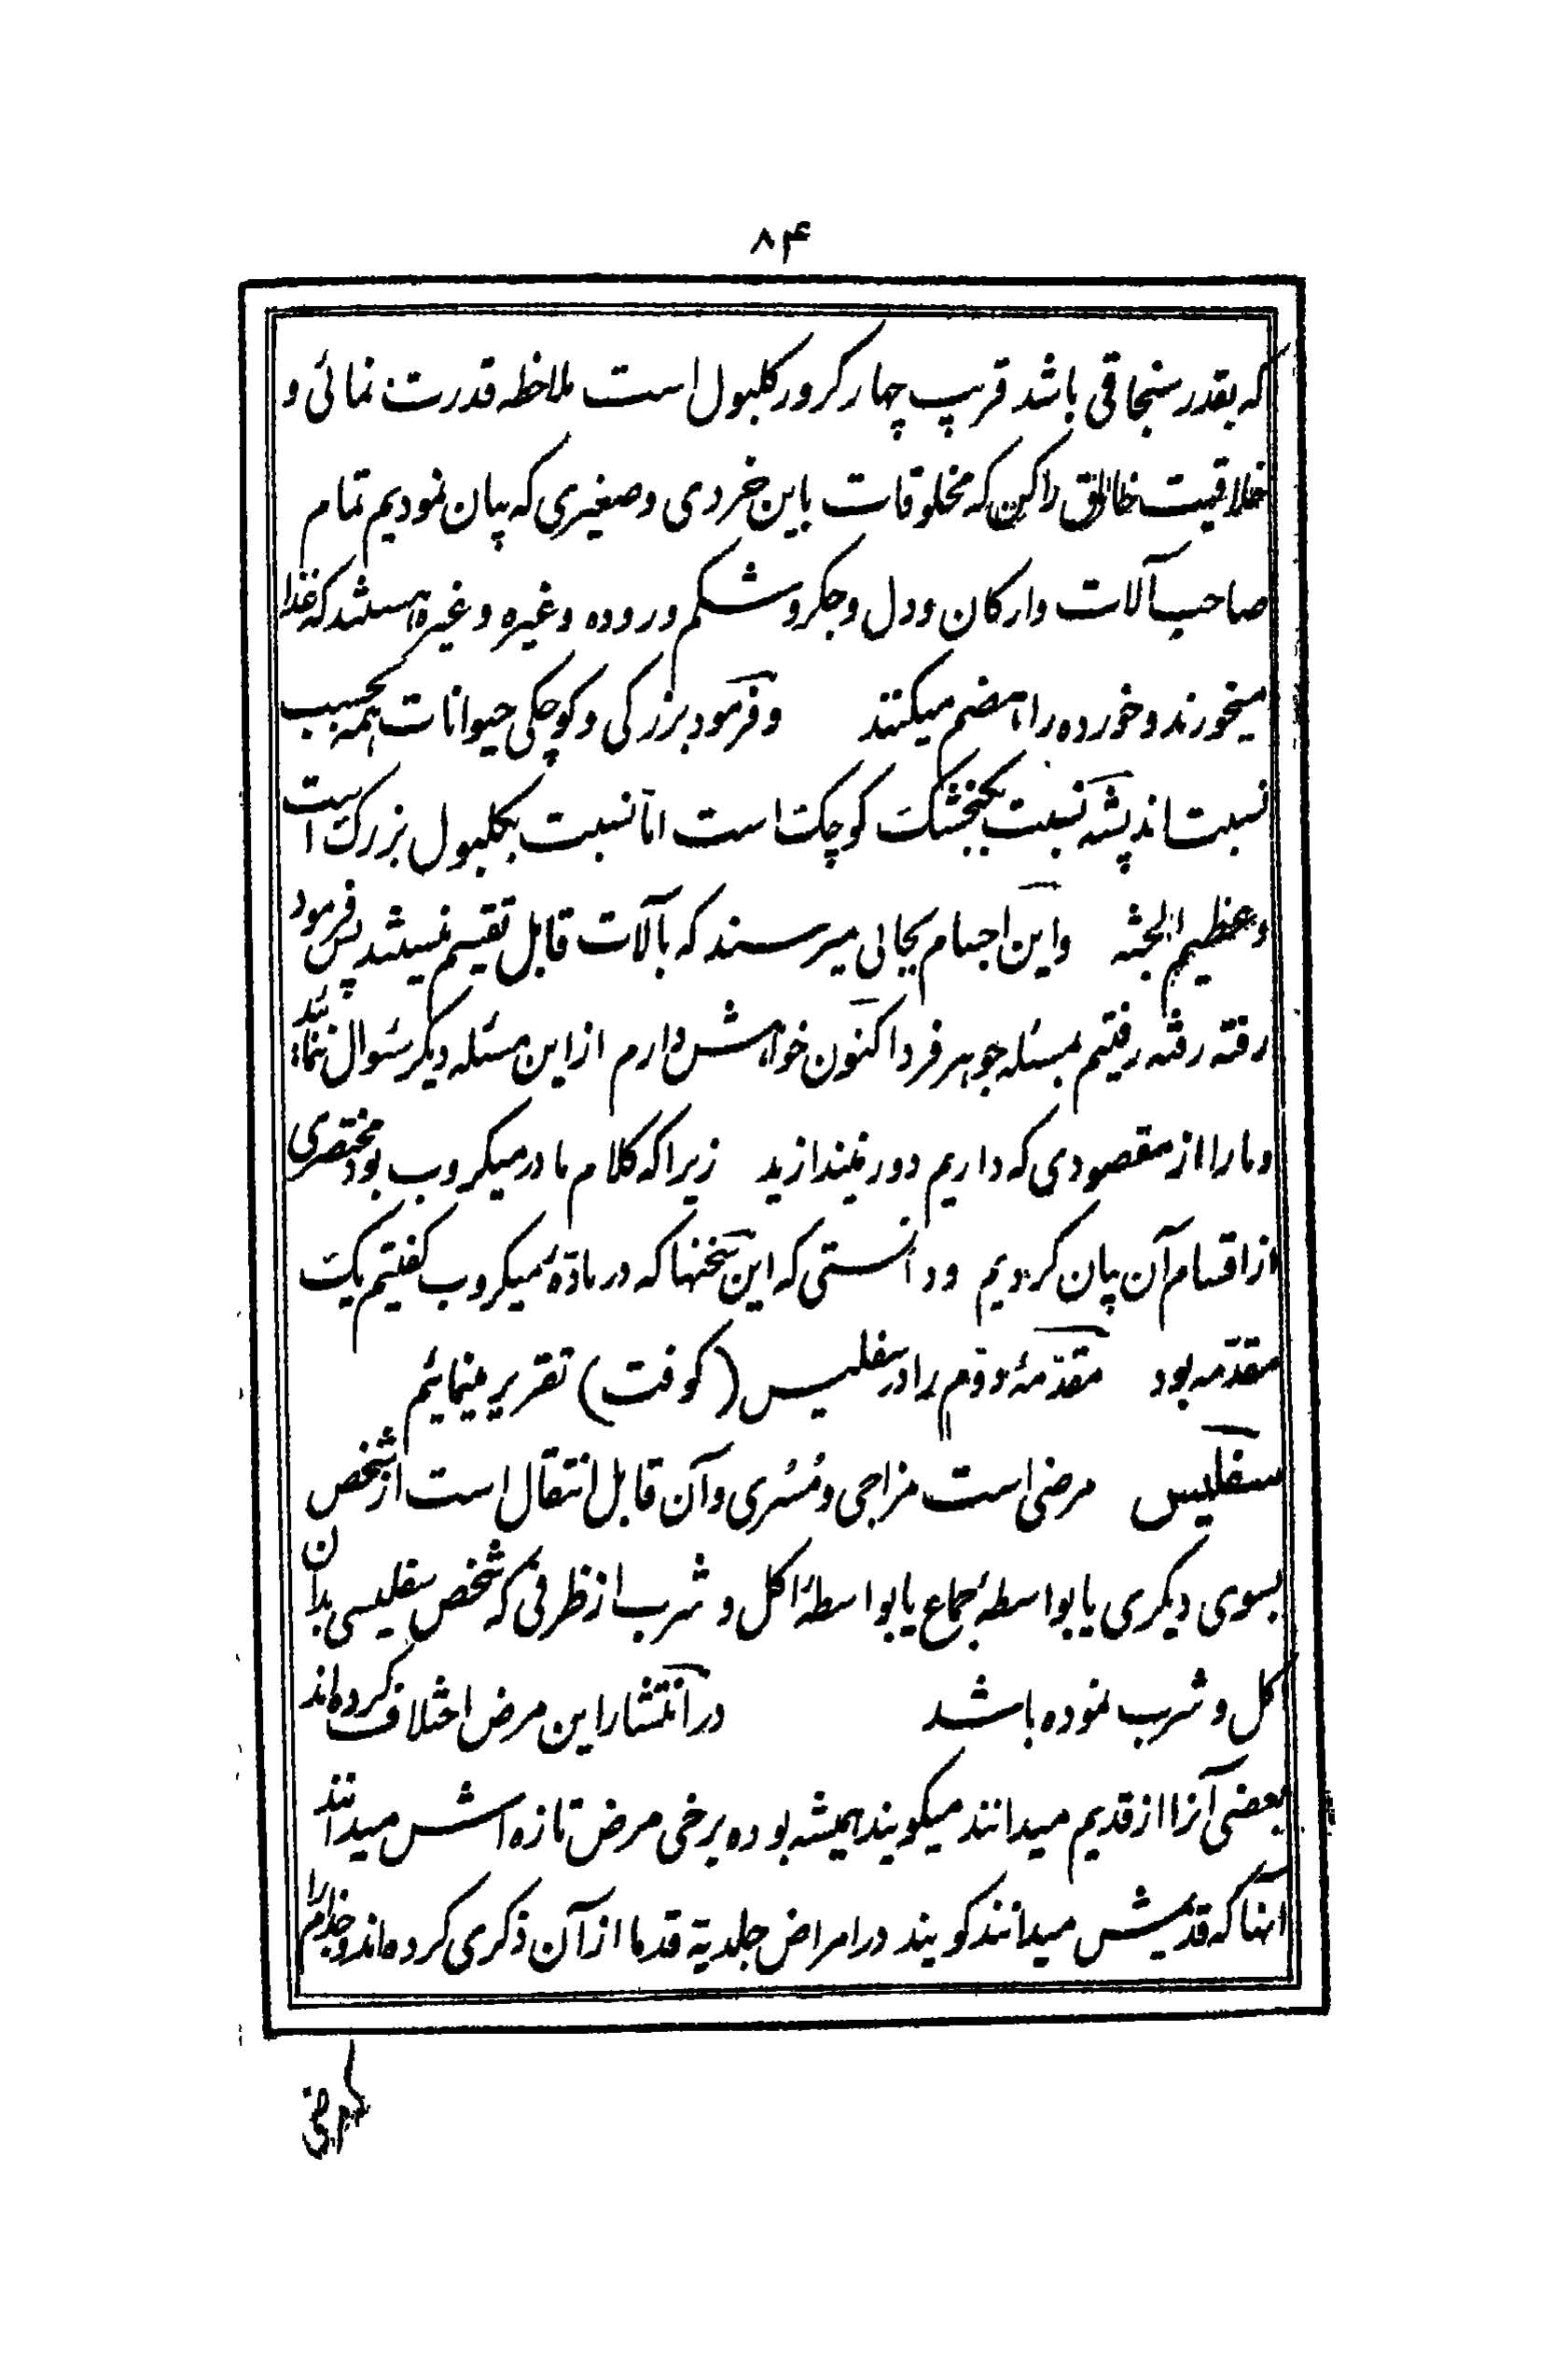 ۸۴
که بقدر سنجاقی باشد قریب چهار کرور کلبول است ملاحظه قدرت نمائی و
خلاقیت خالق را کن که مخلوقات باین خردی و صغیری که بیان نمودیم تمام
صاحب آلات وارکان ودل وجکر وشکم وروده وغیره وغیره هستند که غذا
میخورند وخورده را هضم میکنند وفرمود بزرکی وکوچکی حیوانات همه بحسب
نسبت اند پشه نسبت بکنجشک کوچک است امّا نسبت بکلبول بزرک است
وعظیم الجثه واین اجسام بجائی میرسند که بآلات قابل تقسیم نیستند پس فرمود
رفته رفته رفتیم بمسئله جوهر فرد اکنون خواهش دارم ازاین مسئله دیکر سئوال ننمائید
ومارا از مقصودی که داریم دور نیندازید زیرا که کلام ما در میکروب بود مختصری
از اقسام آن بیان کردیم ودانستی که این سخنها که در مادّهٔ میکروب کفتیم یک
مقدّمه بود مقدّمهٔ دوّم را در سفلیس (کوفت) تقریر مینمائیم
سفلیس مرضی است مزاجی ومُسْری وآن قابل انتقال است از شخص
بسوی دیکری یا بواسطهٔ جماع یا بواسطهٔ اکل و شرب از ظرفی که شخص سفلیسی بدان
اکل و شرب نموده باشد در انتشار این مرض اختلاف کرده‌اند
بعضی آنرا از قدیم میدانند میکویند همیشه بوده برخی مرض تازه اش میدانند
آنها که قدیمش میدانند کویند در امراض جلدیة قدما از آن ذکری کرده‌اند وجذام را